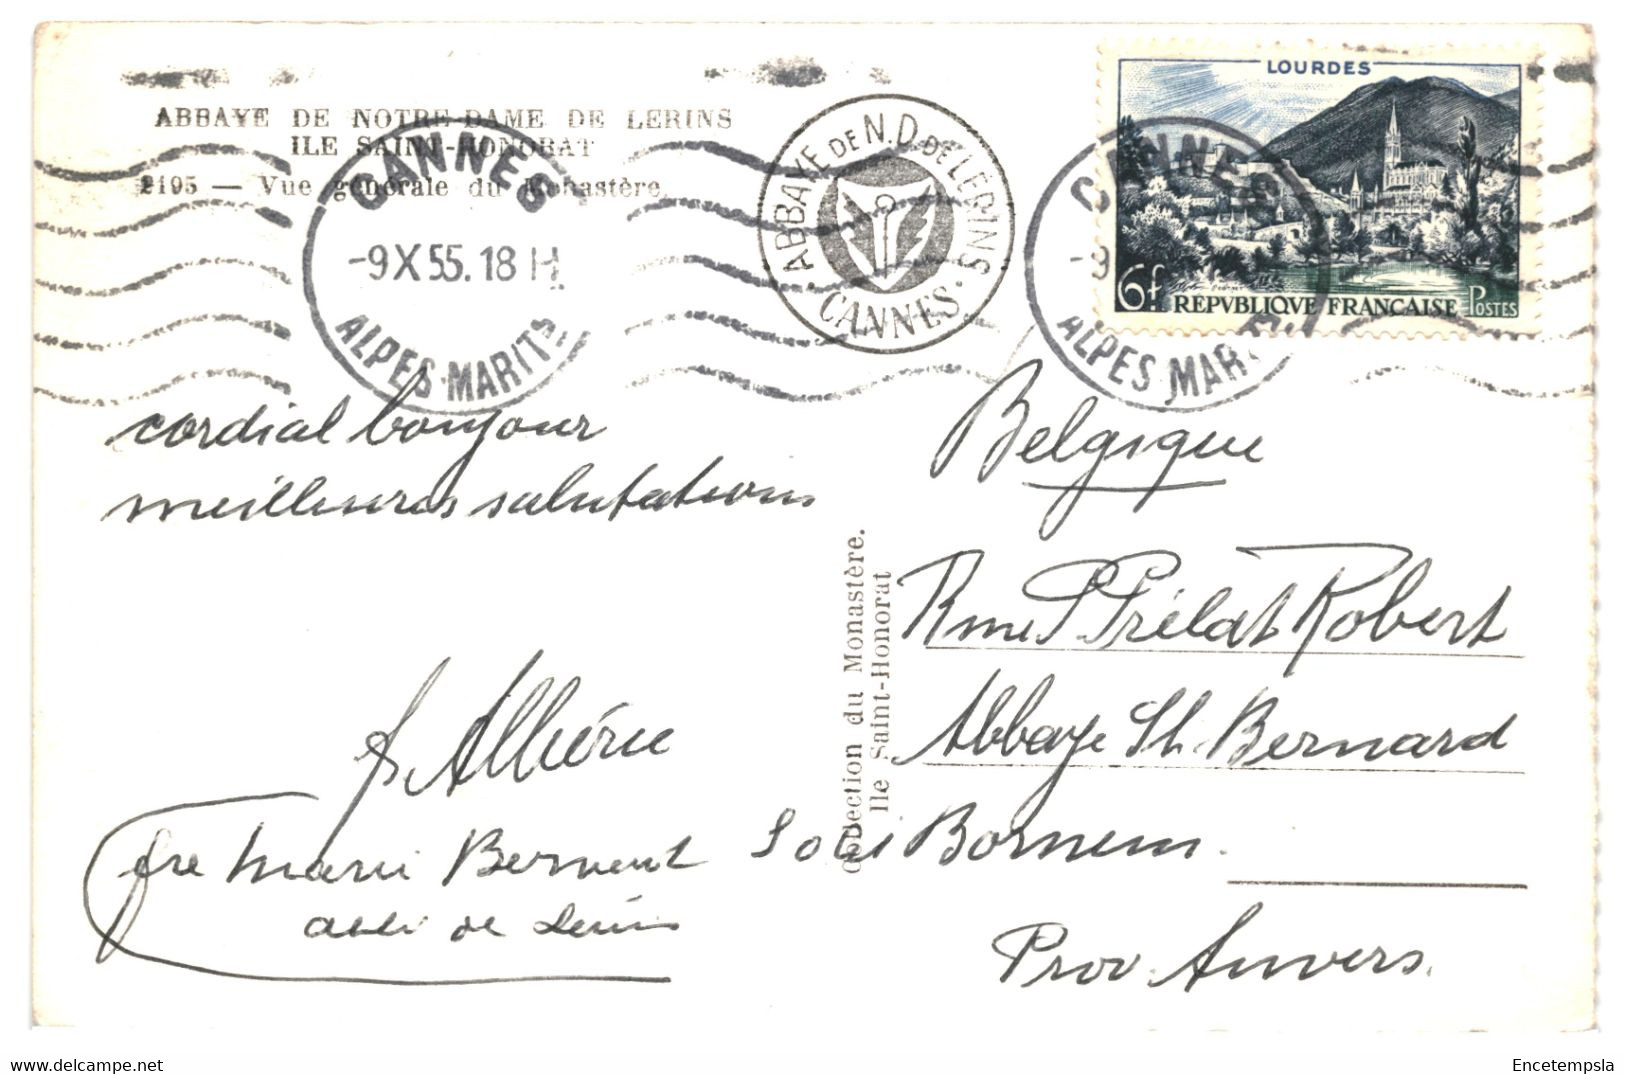 ABBAYE DE NOTRE-DAME DE LERINS
ILE SAINT-HONORAT
2195 — Vue générale du Monastère.
CANNES
-9 X 55. 18 H.
ALPES-MARITS
ABBAYE DE N.D. DE LERINS
· CANNES ·
CANNES
-9
ALPES MAR
LOURDES
6f RÉPVBLIQVE FRANÇAISE POSTES
cordial bonjour
meilleures salutations
fr. Albéric
fre Marie Bernard
abbé de Lérins
Collection du Monastère.
Ile Saint-Honorat
Belgique
Rme P Prélat Robert
Abbaye St. Bernard
Bornem.
Prov. Anvers.
Encetempsla